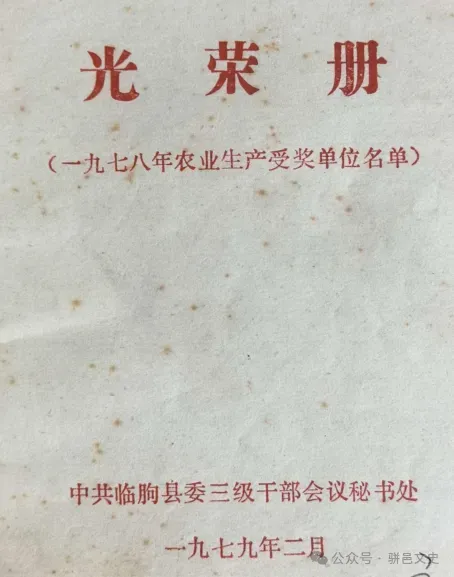 光荣册
（一九七八年农业生产受奖单位名单）
中共临朐县委三级干部会议秘书处
一九七九年二月
公众号·骈邑文史